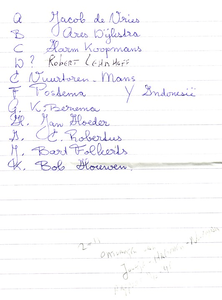 A Jacob de Vries
B Ares Dijkstra
C Harm Koopmans
D? ROBERT LEHNHOFF
E Vuurtoren-Mans
F Postema Y Indonesië
G. K. Berema
H. Jan Gloeder
C. Robertus
Bart Folkerts
K. Bob Houwen